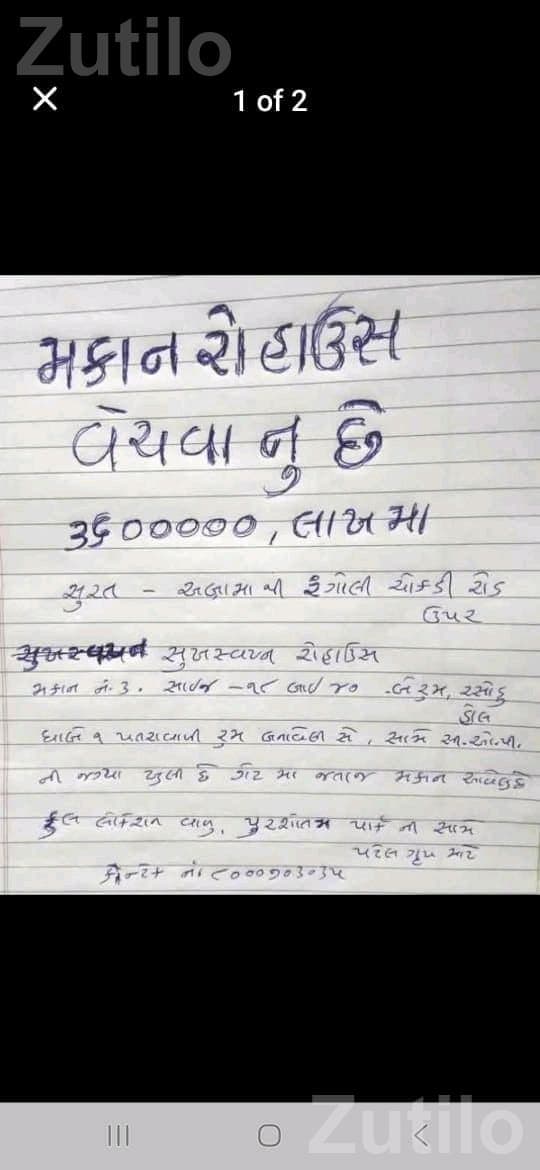 Zutilo
1 of 2
મકાન રો હાઉસ
વેચવા નુ છે
૩૬૦૦૦૦૦, લાખ મા
સુરત - અબ્રામા થી રંગોલી ચોકડી રોડ
ઉપર
સુખસ્વપ્ન સુખસ્વપ્ન રોહાઉસ
મકાન નં. ૩. સાઇજ - ૧૮ બાય ૪૦ .બે રુમ, રસોડુ
હોલ
ધાબે ૧ પતરાવાળી રુમ બનાવેલી સે, સામે સી.ઓ.પી.
ની જગ્યા ખુલી છે ગેટ મા જતાજ મકાન આવેલુ છે
ફુલ લોકેશન વાળુ, પુરશોતમ પાર્ક ની સામે
પટેલ ગૃપ માટે
કોન્ટેક નં ૮૦૦૦૧૦૩૦૩૫
Zutilo